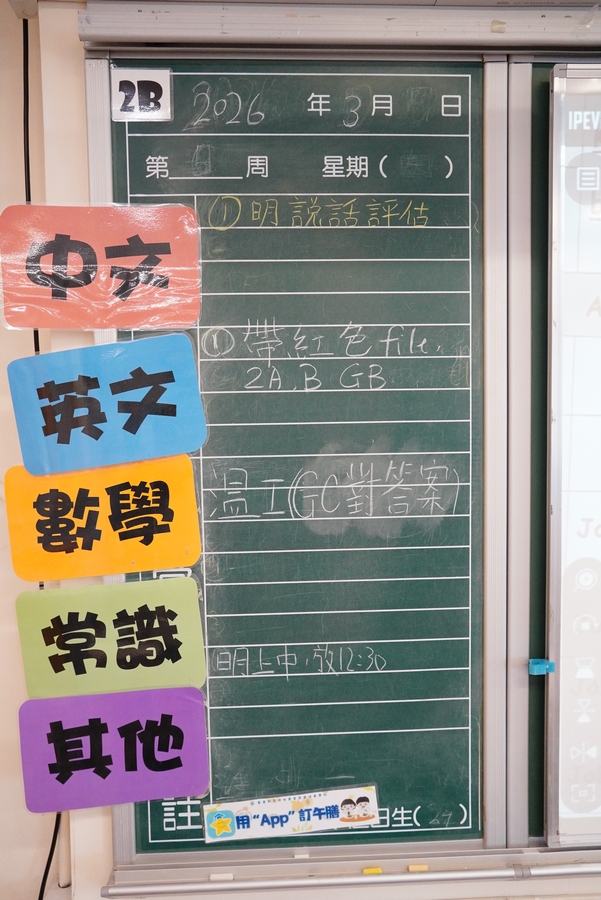 2B
2026 年 3 月 日
第 周 星期( )
① 明說話評估
中文
① 帶紅色file,
2A, B GB
英文
溫工(GC對答案)
數學
常識
明上中,放12:30
其他
註
用“App”訂午膳
日生( )
IPEV